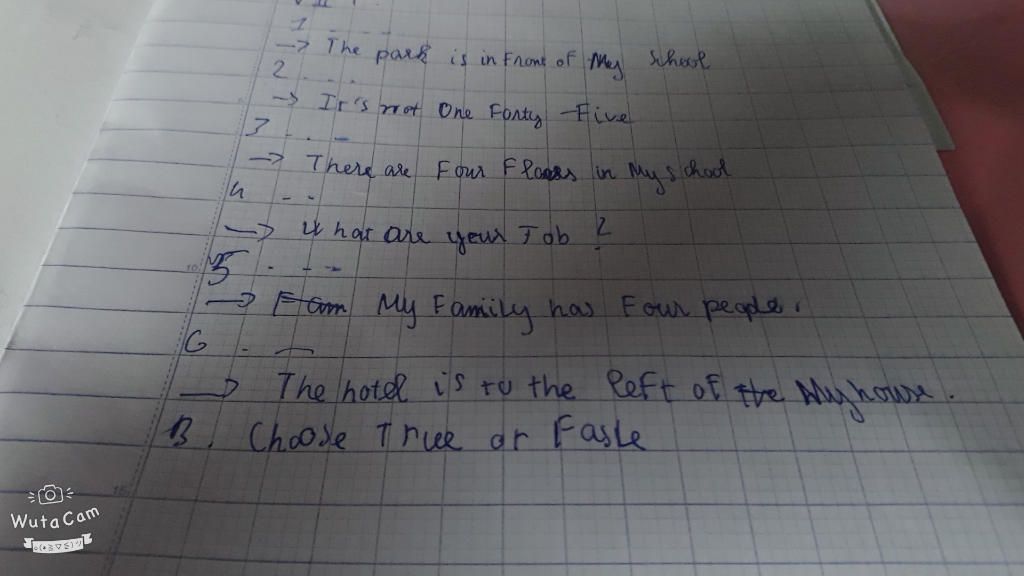 VII.
1 ....
→ The park is in front of My School
2 ....
→ It's not One Fonty Five
3 . . –
→ There are Four Floors in My school
4 - -
→ What are your Job ?
5 . - - -
→ Fam My Family has Four people.
6 . –
→ The hotel is to the left of the My house.
B. Choose True or Fasle
10
15
WutaCam